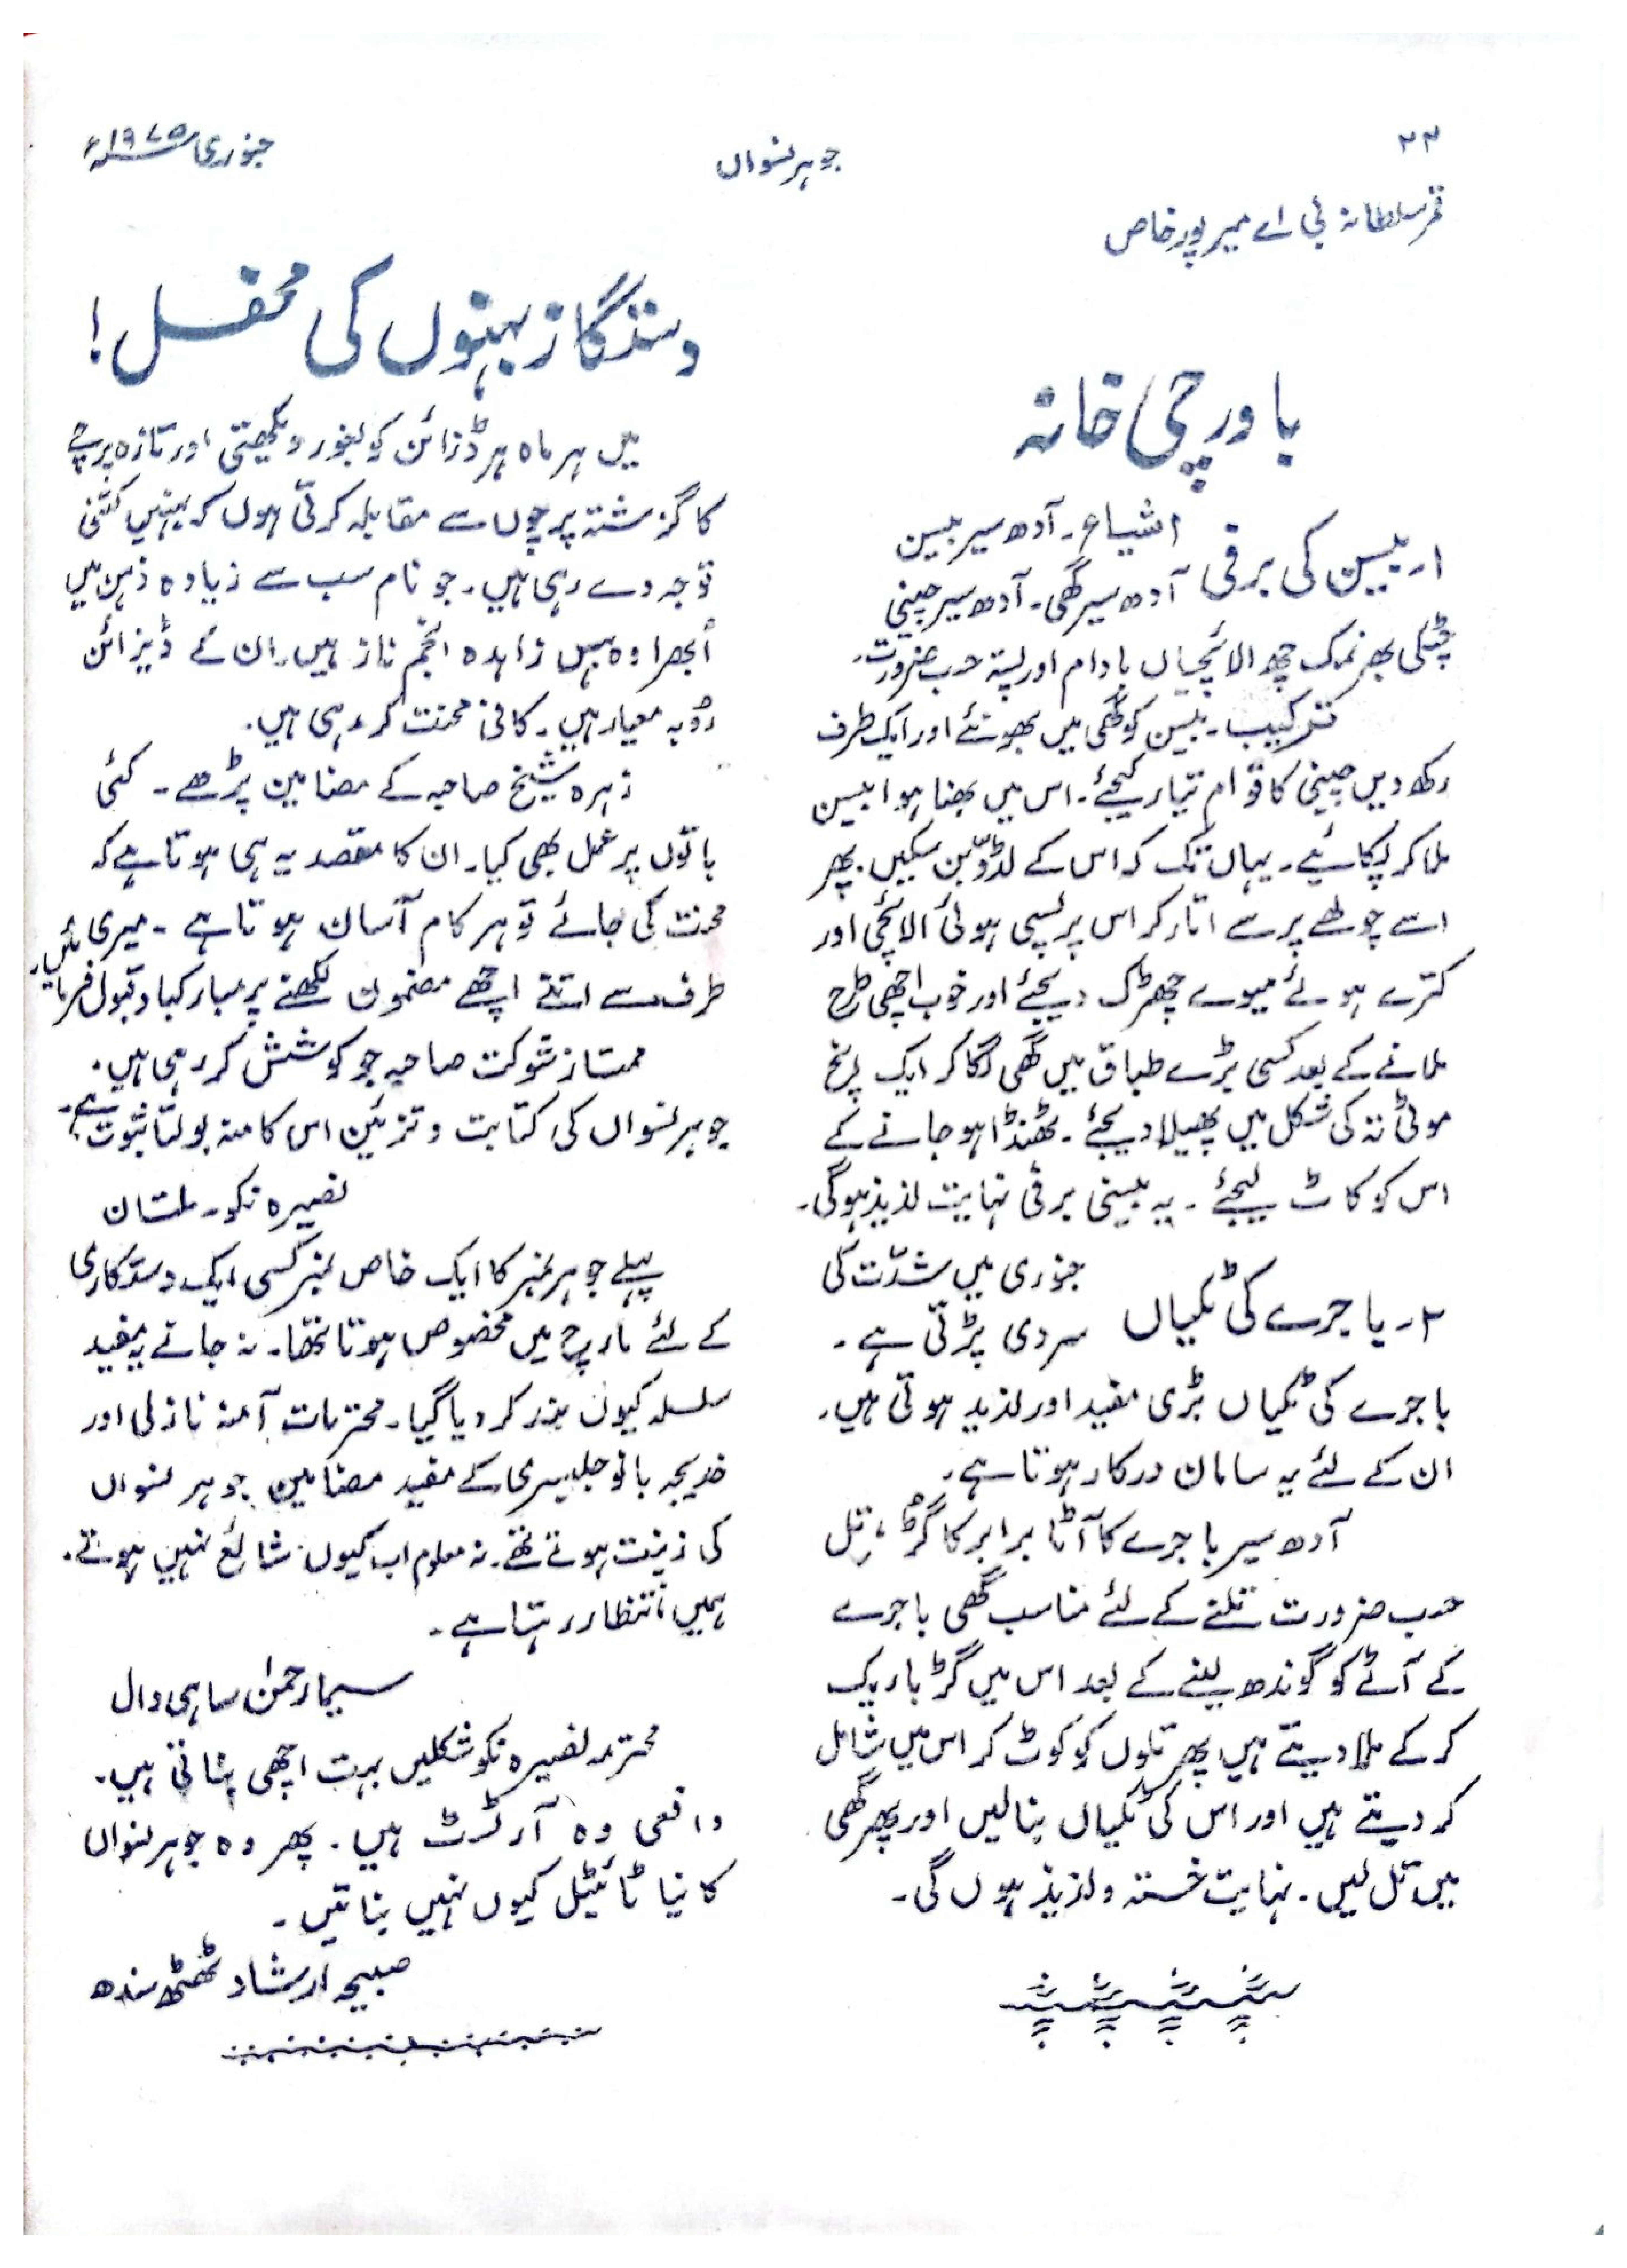 ۲۲
جوہر نسواں
جنوری ۱۹۷۵ء
قمر سلطانہ بی اے میر پور خاص
باورچی خانہ
۱۔ بیسن کی برفی
اشیاء۔ آدھ سیر بیسن
آدھ سیر گھی۔ آدھ سیر چینی
چٹکی بھر نمک چھ الائچیاں بادام اور پستہ حسب ضرورت۔
ترکیب۔ بیسن کو گھی میں بھونئے اور ایک طرف
رکھ دیں چینی کا قوام تیار کیجئے۔ اس میں بھنا ہوا بیسن
ملا کر پکائیے۔ یہاں تک کہ اس کے لڈو بن سکیں۔ پھر
اسے چولھے پر سے اتار کر اس پر پسی ہوئی الائچی اور
کترے ہوئے میوے چھڑک دیجئے اور خوب اچھی طرح
ملانے کے بعد کسی بڑے طباق میں گھی لگا کر ایک انچ
موٹی تہ کی شکل میں پھیلا دیجئے۔ ٹھنڈا ہو جانے کے
اس کو کاٹ لیجئے۔ یہ بیسنی برفی نہایت لذیذ ہوگی۔
۲۔ باجرے کی ٹکیاں
جنوری میں شدّت کی
سردی پڑتی ہے۔
باجرے کی ٹکیاں بڑی مفید اور لذیذ ہوتی ہیں۔
ان کے لئے یہ سامان درکار ہوتا ہے۔
آدھ سیر باجرے کا آٹا برابر کا گُڑ، تِل
حسب ضرورت تلنے کے لئے مناسب گھی باجرے
کے آٹے کو گوندھ لینے کے بعد اس میں گڑ باریک
کر کے ملا دیتے ہیں پھر تلوں کو کوٹ کر اس میں شامل
کر دیتے ہیں اور اس کی ٹکیاں بنا لیں اور پھر گھی
میں تل لیں۔ نہایت خستہ و لذیذ ہوں گی۔
دستکار بہنوں کی محفل!
میں ہر ماہ ہر ڈزائن کو بغور دیکھتی اور تازہ پرچے
کا گزشتہ پرچوں سے مقابلہ کرتی ہوں کہ بہنیں کتنی
توجہ دے رہی ہیں۔ جو نام سب سے زیادہ ذہن میں
اُبھرا وہ بہن زاہدہ انجم ناز ہیں۔ ان کے ڈیزائن
رُوبہ معیار ہیں۔ کافی محنت کر رہی ہیں۔
زہرہ شیخ صاحبہ کے مضامین پڑھے۔ کئی
باتوں پر عمل بھی کیا۔ ان کا مقصد یہ ہی ہوتا ہے کہ
محنت کی جائے تو ہر کام آسان ہوتا ہے۔ میری
طرف سے اتنے اچھے مضمون لکھنے پر مبارکباد قبول فرمائیں۔
ممتاز شوکت صاحبہ جو کوشش کر رہی ہیں۔
جوہر نسواں کی کتابت و تزئین اس کا منہ بولتا ثبوت ہے۔
نصیرہ نکو۔ ملتان
پہلے جوہر نمبر کا ایک خاص نمبر کسی ایک دستکاری
کے لئے مارچ میں مخصوص ہوتا تھا۔ نہ جانے یہ مفید
سلسلہ کیوں بند کر دیا گیا۔ محترمات آمنہ نازلی اور
خدیجہ بانو جلیسری کے مفید مضامین جوہر نسواں
کی زینت ہوتے تھے۔ نہ معلوم اب کیوں شائع نہیں ہوتے۔
ہمیں انتظار رہتا ہے۔
سیما رحمٰن ساہی وال
محترمہ نصیرہ نکو شکلیں بہت اچھی بناتی ہیں۔
واقعی وہ آرٹسٹ ہیں۔ پھر وہ جوہر نسواں
کا نیا ٹائیٹل کیوں نہیں بناتیں۔
صبیحہ ارشاد ٹھٹھ سندھ